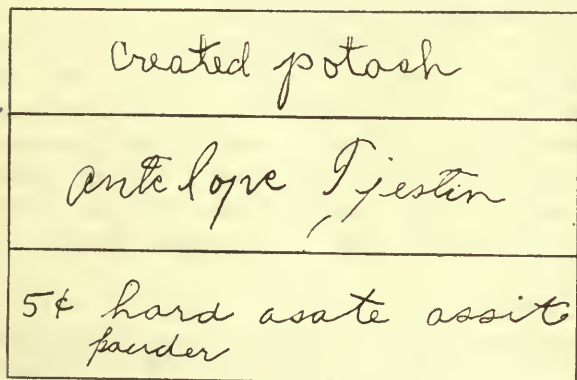 Created potash
antelope Tjestin
5¢ hard asate assit
pauder